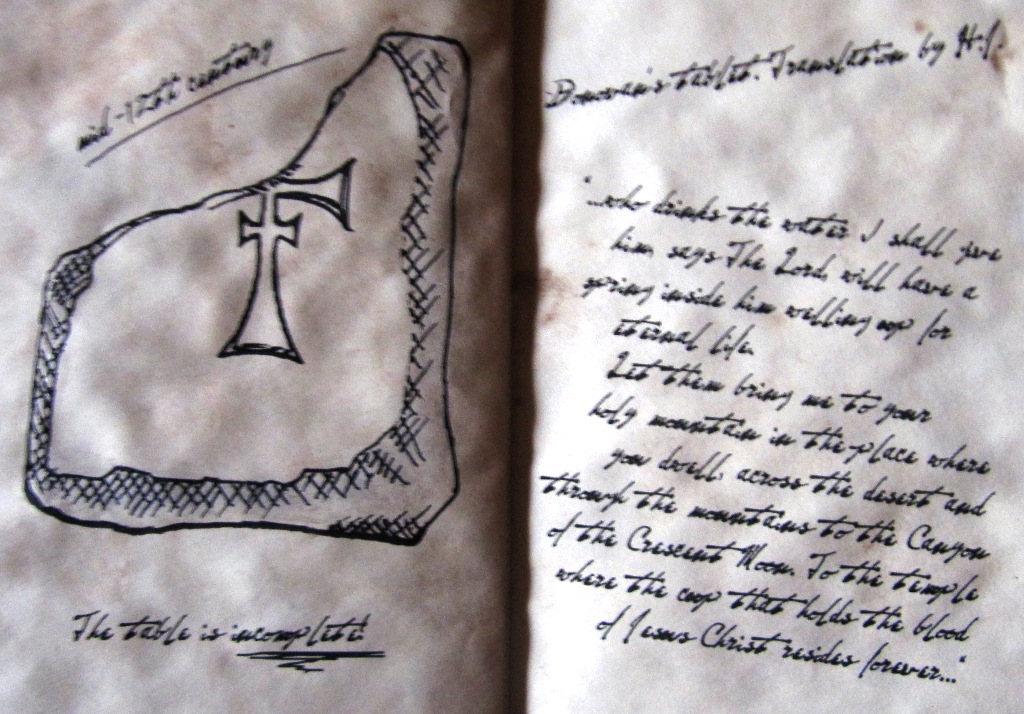 mid-12th century
The table is incomplete!
Donovan's tablet. Translation by H.J.
"...who drinks the water I shall give
him, says The Lord, will have a
spring inside him welling up for
eternal life.
Let them bring me to your
holy mountain in the place where
you dwell, across the desert and
through the mountains to the Canyon
of the Crescent Moon. To the temple
where the cup that holds the blood
of Jesus Christ resides forever..."